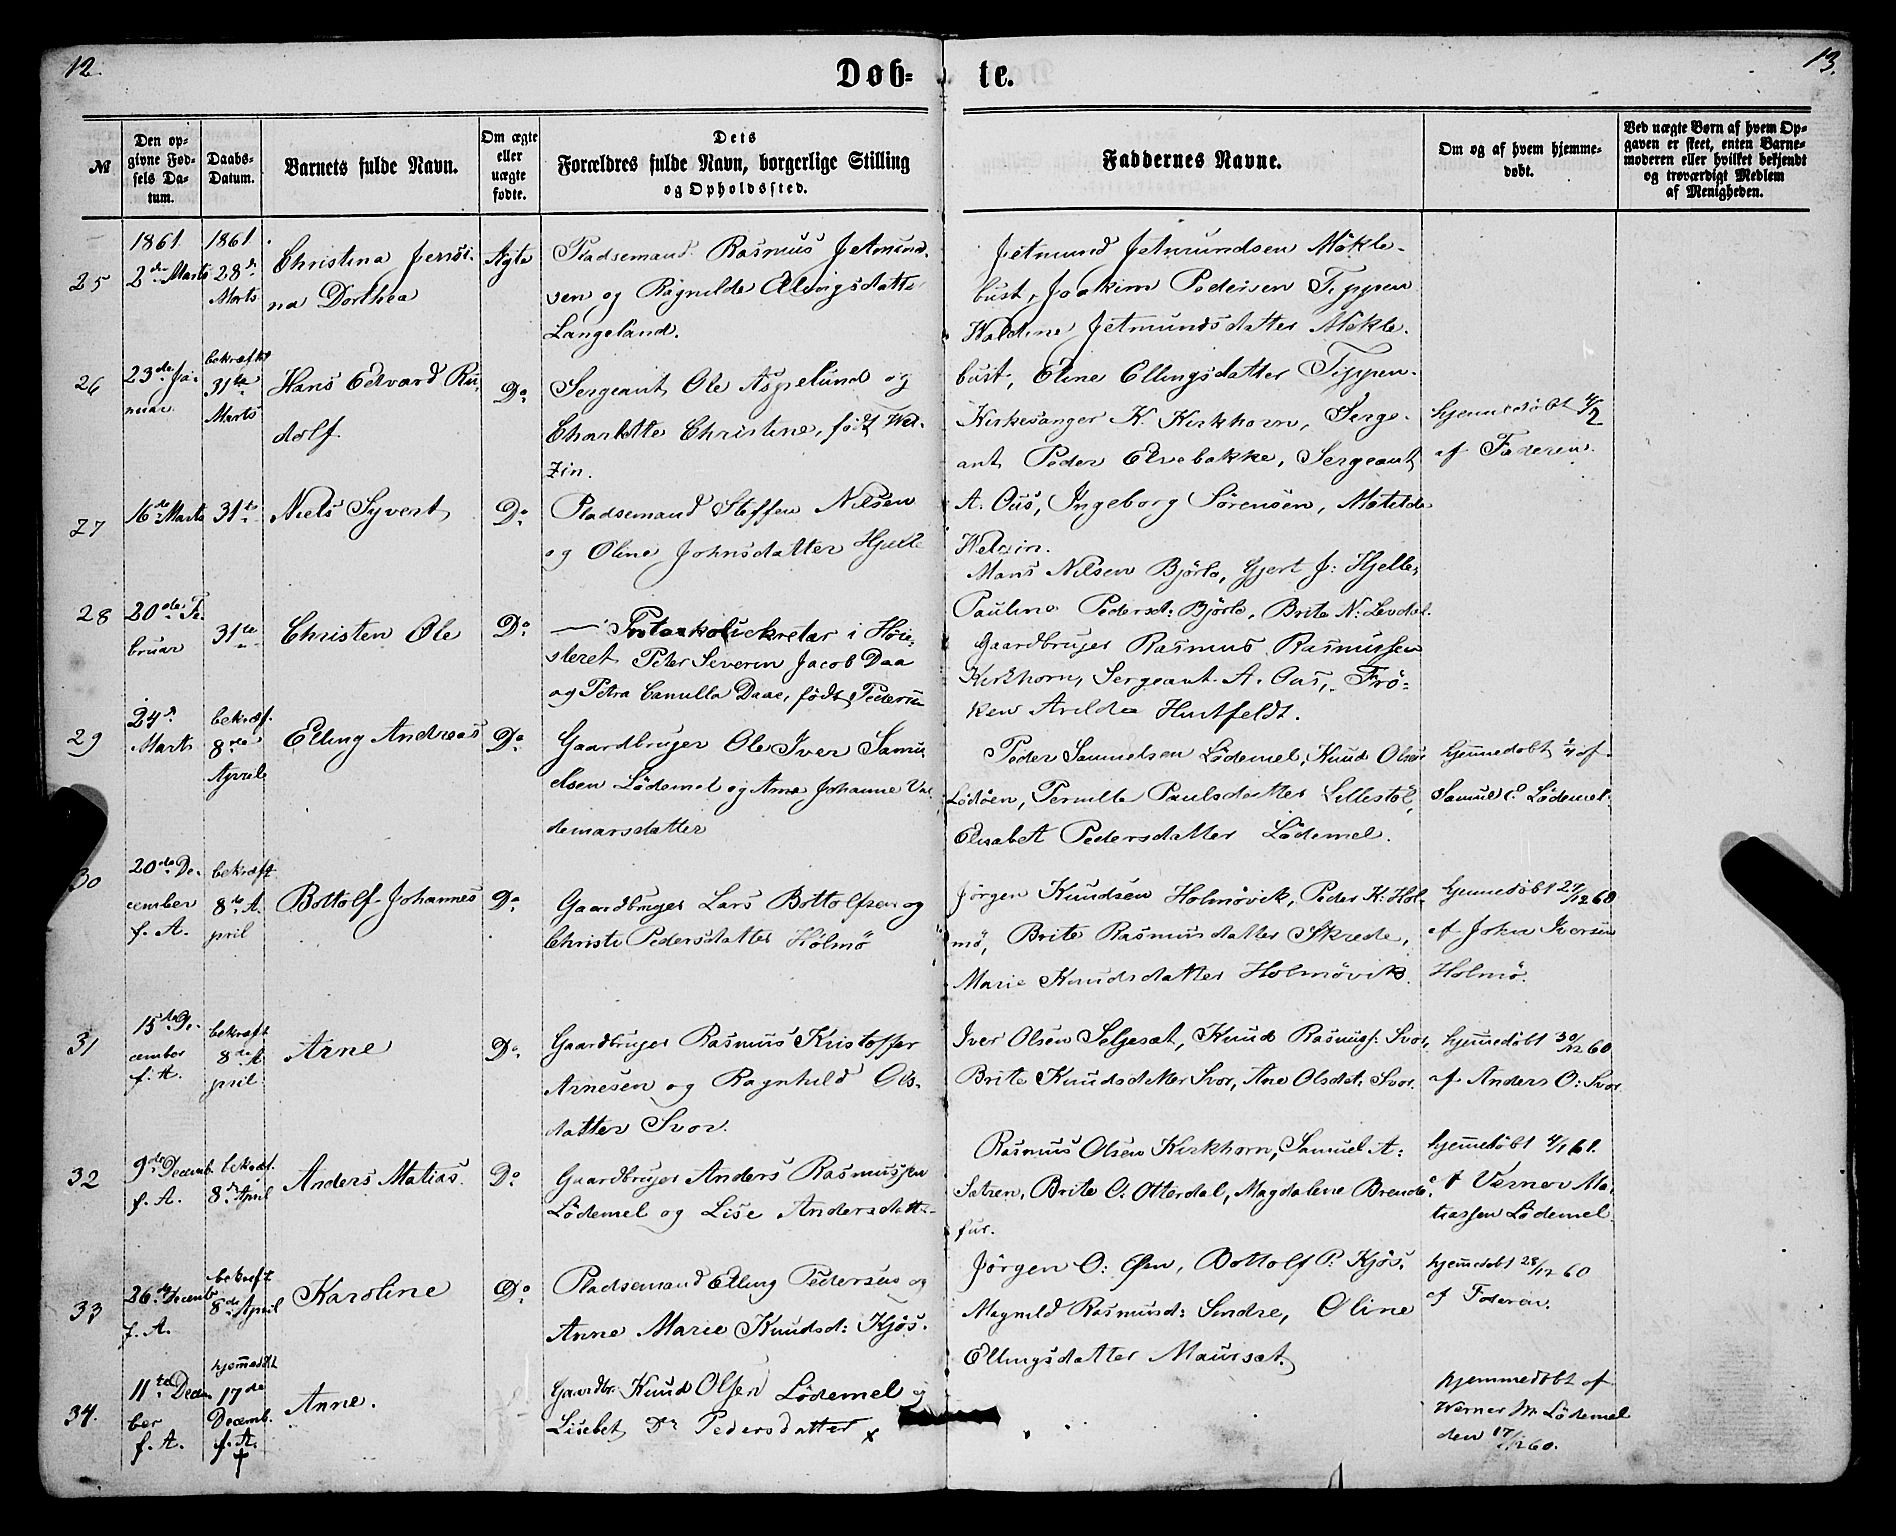 12.
Døb-
te.
13.
№
Den op-
givne Fød-
sels Da-
tum.
Daabs-
Datum.
Barnets fulde Navn.
Om ægte
eller
uægte
fødte.
Dets
Forældres fulde Navn, borgerlige Stilling
og Opholdssted.
Faddernes Navne.
Om og af hvem hjemme-
døbt.
Ved uægte Børn af hvem Op-
gaven er skeet, enten Barne-
moderen eller hvilket bekjendt
og troværdigt Medlem
af Menigheden.
25
1861.
2de Marts
1861.
28de
Marts
Christina
na Dorthea
Ægte
Pladsemand Rasmus Jetmund-
sen og Ragnilde Ellingsdatter
Langeland.
Jetmund Jetmundsen Møkle-
bust, Joakim Pedersen Tippen
Waldine Jetmundsdatter Møkle-
bust, Eline Ellingsdatter Tippen.
26
23de Ja-
nuar
bekræftet
31te
Marts
Hans Edvard Ru-
dolf
Do
Sergeant Ole Aspelund og
Charlotte Christine, født Wel-
zin.
Kirkesanger K. Kirkhorn, Serge-
ant Peder Elvebakke, Sergeant
A. Aus, Ingeborg Sørensen, Matilde
Welzin.
hjemmedøbt 4/2
af Faderen.
27
16de Marts
31te
Niels Syvert
Do
Pladsemand Steffen Nilsen
og Oline Johnsdatter Hjelle
Mons Nilsen Bjørlo, Gjert J: Hjelle,
Pauline Pedersd: Bjørlo, Brite N: Levdal
28
20de Fe-
bruar
31te
Christen Ole
Do
— Protokolsekretær i Høie-
steret Peter Severin Jacob Daa
og Petra Camilla Daae, født Pedersen
Gaardbruger Rasmus Rasmussen
Kirkhorn, Sergeant A. Aus, Frø-
ken Arilda Huitfeldt.
29
24de
Marts
bekræf.
8de
April
Elling Andreas
Do
Gaardbruger Ole Iver Samu-
elsen Lødemel og Anna Johanne Val-
demarsdatter
Peder Samuelsen Lødemel, Knud Olsen
Lødøen, Pernille Paulsdatter Lillestøl,
Elisabet Pedersdatter Lødemel.
hjemmedøbt 1/4 af
Samuel Lødemel.
30
20de De-
cember
f. A.
bekræft
8de A-
pril
Bottolf Johannes
Do
Gaardbruger Lars Bottolfsen og
Christi Pedersdatter Holmø
Jørgen Knudsen Holmøvik, Peder K: Hol-
mø, Brite Rasmusdatter Skrede,
Marie Knudsdatter Holmøvik.
hjemmedøbt 27/12 60
af John Iversen
Holmø.
31
15de De-
cember
f. A.
bekræft
8de A-
pril
Arne
Do
Gaardbruger Rasmus Kristoffer
Arnesen og Ragnhild Ols-
datter Svor.
Iver Olsen Selgesæt, Knud Rasmuss: Svor,
Brite Knudsdatter Svor, Ane Olsdat. Svor.
hjemmedøbt 30/12 60
af Anders O: Svor
32
9de Decemb.
f. A.
bekræf.
8de April
Anders Matias.
Do
Gaardbruger Anders Rasmussen
Lødemel og Lise Andersdatter
Rasmus Olsen Kirkhorn, Samuel A:
Sætren, Brite O: Otterdal, Magdalene Brende-
fur.
hjemmedøbt 4/1 61.
af Verner Ma-
tiassen Lødemel.
33
26de Decembr
f. A.
bekræft
8de April
Karoline
Do
Pladsemand Elling Pedersen og
Anne Marie Knudsd: Kjøs.
Jørgen O: Øen, Bottolf P: Kjøs.
Magnild Rasmusd: Sindre, Oline
Ellingsdatter Maursæt.
hjemmedøbt 28/12 60
af Faderen.
34.
11te Decem-
ber
f. A.
hjemmedøbt
17de
Decemb.
f. A.
†
Anne.
Gaardbr. Knud Olsen Lødemel og
Lisebet Do Pedersdatter x
hjemmedøbt af
Werner M. Lødemel
den 17/12 60.